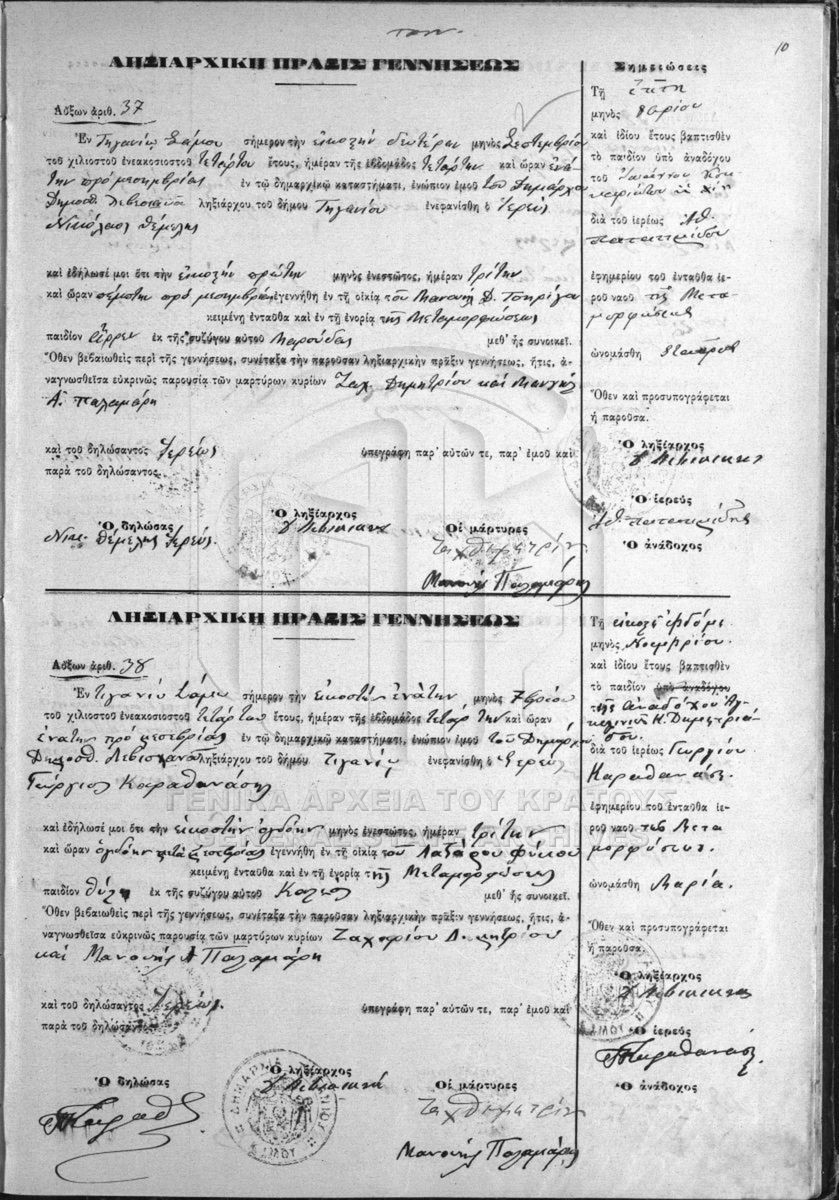 10
ΛΗΞΙΑΡΧΙΚΗ ΠΡΑΞΙΣ ΓΕΝΝΗΣΕΩΣ
Αὔξων ἀριθ. 37
Ἐν Τηγανίῳ Σάμου σήμερον τὴν εἰκοστὴν δευτέραν μηνὸς Σεπτεμβρίου
τοῦ χιλιοστοῦ ἐνεακοσιοστοῦ τετάρτου ἔτους, ἡμέραν τῆς ἑβδομάδος τετάρτην καὶ ὥραν ἐνά-
την πρὸ μεσημβρίας ἐν τῷ δημαρχικῷ καταστήματι, ἐνώπιον ἐμοῦ τοῦ Δημάρχου
Δημοσθ. ληξιάρχου τοῦ δήμου Τηγανίου ἐνεφανίσθη ὁ ἱερεὺς
Νικόλαος Θέμελης
καὶ ἐδήλωσέ μοι ὅτι τὴν εἰκοστὴν πρώτην μηνὸς ἐνεστῶτος, ἡμέραν τρίτην
καὶ ὥραν πέμπτην πρὸ μεσημβρίας ἐγεννήθη ἐν τῇ οἰκίᾳ τοῦ Μανώλη Δ.
κειμένῃ ἐνταῦθα καὶ ἐν τῇ ἐνορίᾳ τῆς Μεταμορφώσεως
παιδίον ἄρρεν ἐκ τῆς συζύγου αὐτοῦ Μαρούδας μεθ' ἧς συνοικεῖ.
Ὅθεν βεβαιωθεὶς περὶ τῆς γεννήσεως, συνέταξα τὴν παροῦσαν ληξιαρχικὴν πρᾶξιν γεννήσεως, ἥτις, ἀ-
ναγνωσθεῖσα εὐκρινῶς παρουσίᾳ τῶν μαρτύρων κυρίων Ζαχ. Δημητρίου καὶ Μανώλη
Α. Παλαμάρη
καὶ τοῦ δηλώσαντος ἱερέως ὑπεγράφη παρ' αὐτῶν τε, παρ' ἐμοῦ καὶ
παρὰ τοῦ δηλώσαντος.
Ὁ δηλώσας Ὁ ληξίαρχος Οἱ μάρτυρες
Νικ. Θέμελης ἱερεύς.
Ζαχ Δημητρίου
Μανώλης Παλαμάρης
Σημειώσεις
Τῇ ἕκτῃ
μηνὸς
καὶ ἰδίου ἔτους βαπτισθὲν
τὸ παιδίον ὑπὸ ἀναδόχου
τοῦ
διὰ τοῦ ἱερέως Ἀθ.
ἐφημερίου τοῦ ἐνταῦθα ἱε-
ροῦ ναοῦ τῆς Μετα-
μορφώσεως
ὠνομάσθη
Ὅθεν καὶ προσυπογράφεται
ἡ παροῦσα.
Ὁ ληξίαρχος
Ὁ ἱερεὺς
Ὁ ἀνάδοχος
ΛΗΞΙΑΡΧΙΚΗ ΠΡΑΞΙΣ ΓΕΝΝΗΣΕΩΣ
Αὔξων ἀριθ. 38
Ἐν Τιγανίῳ Σάμου σήμερον τὴν εἰκοστὴν ἐνάτην μηνὸς 7βρίου
τοῦ χιλιοστοῦ ἐνεακοσιοστοῦ τετάρτου ἔτους, ἡμέραν τῆς ἑβδομάδος τετάρτην καὶ ὥραν
ἐνάτην πρὸ μεσημβρίας ἐν τῷ δημαρχικῷ καταστήματι, ἐνώπιον ἐμοῦ τοῦ Δημάρχου
Δημοσθ. ληξιάρχου τοῦ δήμου Τιγανίου ἐνεφανίσθη ὁ ἱερεὺς
Γεώργιος Καραθανάσης
καὶ ἐδήλωσέ μοι ὅτι τὴν εἰκοστὴν ὀγδόην μηνὸς ἐνεστῶτος, ἡμέραν τρίτην
καὶ ὥραν ὀγδόην ἐγεννήθη ἐν τῇ οἰκίᾳ τοῦ Λαζάρου Φύκου
κειμένῃ ἐνταῦθα καὶ ἐν τῇ ἐνορίᾳ τῆς Μεταμορφώσεως
παιδίον θῆλυ ἐκ τῆς συζύγου αὐτοῦ μεθ' ἧς συνοικεῖ.
Ὅθεν βεβαιωθεὶς περὶ τῆς γεννήσεως, συνέταξα τὴν παροῦσαν ληξιαρχικὴν πρᾶξιν γεννήσεως, ἥτις, ἀ-
ναγνωσθεῖσα εὐκρινῶς παρουσίᾳ τῶν μαρτύρων κυρίων Ζαχαρίου Δημητρίου
καὶ Μανώλης Α Παλαμάρη
καὶ τοῦ δηλώσαντος ἱερέως. ὑπεγράφη παρ' αὐτῶν τε, παρ' ἐμοῦ καὶ
παρὰ τοῦ δηλώσαντος.
Ὁ δηλώσας Ὁ ληξίαρχος Οἱ μάρτυρες
Ζαχ Δημητρίου
Μανώλης Παλαμάρης
Τῇ εἰκοστῇ ἑβδόμῃ
μηνὸς Νοεμβρίου.
καὶ ἰδίου ἔτους βαπτισθὲν
τὸ παιδίον ὑπὸ ἀναδόχου
τῆς ἀναδόχου
διὰ τοῦ ἱερέως Γεωργίου
Καραθανάση.
ἐφημερίου τοῦ ἐνταῦθα ἱε-
ροῦ ναοῦ τῆς Μετα
μορφώσεως.
ὠνομάσθη Μαρία.
Ὅθεν καὶ προσυπογράφεται
ἡ παροῦσα.
Ὁ ληξίαρχος
Ὁ ἱερεὺς
Γ Καραθανάσης
Ὁ ἀνάδοχος
ΓΕΝΙΚΑ ΑΡΧΕΙΑ ΤΟΥ ΚΡΑΤΟΥΣ